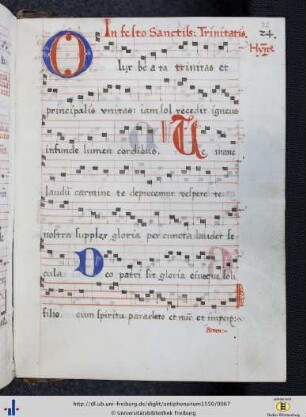 In festo Sanctiss: Trinitatis.
24.
Hym̄
O
lux beata trinitas et
principalis vnitas: iam sol recedit igneus
infunde lumen cordibus. Te mane
laudū carmine te deprecemur vespere te
nostra supplex gloria per cuncta laudet se
cula Deo patri sit gloria eiusque soli
filio. cum spiritu paracleto et nūc et imperp:
Amen.
http://dl.ub.uni-freiburg.de/diglit/antiphonarium1550/0067
© Universitätsbibliothek Freiburg